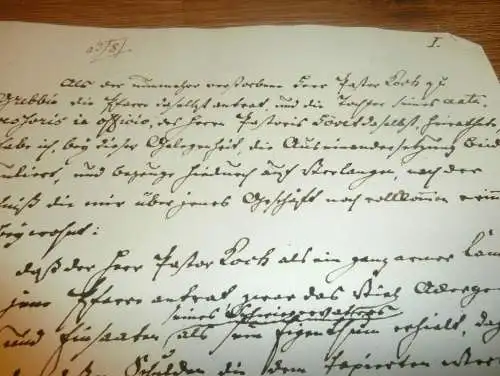 I.
Als der nunmehr verstorbene Herr Pastor Kock zu
Grebbin die Pfarre daselbst antrat, und die Tochter seines ante-
cessoris in officio, des Herrn Pastoris daselbst, heirathete
habe ich, bey dieser Gelegenheit, die Auseinandersetzung
und bezeuge hiedurch auf Verlangen, nach der
die mir über jenes Geschäft noch vollkommen
beywohnt:
daß der Herr Pastor Kock als ein ganz armer
jene Pfarre antrat, zwar das Vieh, Ackerge
seines Schwiegervaters
und Einsaaten als sein Eigenthum erhielt, da
Schulden die dem